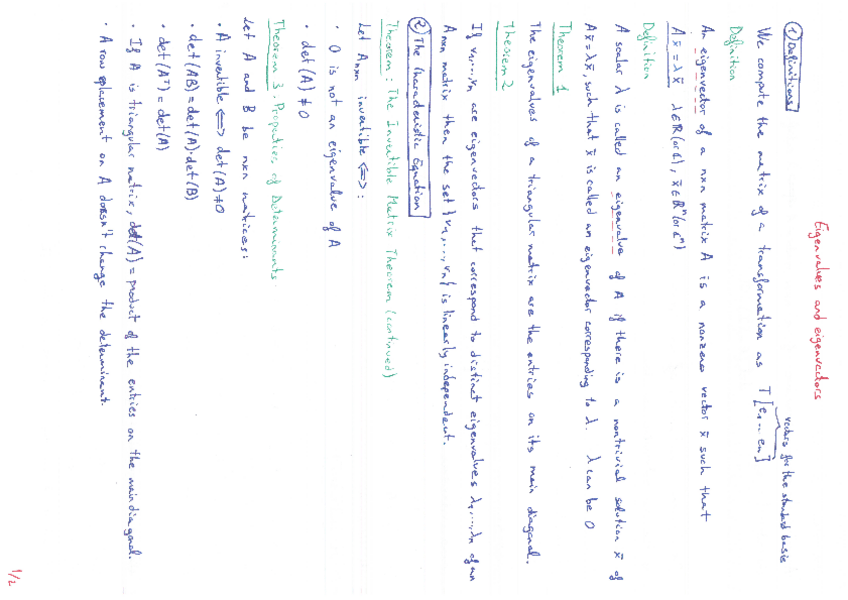 Eigenvalues and eigenvectors
① Definitions
We compute the matrix of a transformation as T[e₁ … eₙ]
vectors for the standard basis
Definition
An eigenvector of a nxn matrix A is a nonzero vector x̄ such that
Ax̄ = λx̄ λ∈ℝ (or ℂ), x̄∈ℝⁿ (or ℂⁿ)
Definition
A scalar λ is called an eigenvalue of A if there is a nontrivial solution x̄ of
Ax̄ = λx̄, such that x̄ is called an eigenvector corresponding to λ. λ can be 0
Theorem 1
The eigenvalues of a triangular matrix are the entries on its main diagonal.
Theorem 2
If v₁,…,vₙ are eigenvectors that correspond to distinct eigenvalues λ₁,…,λₙ of an
Anxn matrix then the set {v₁,…,vₙ} is linearly independent.
② The Characteristic Equation
Theorem: The Invertible Matrix Theorem (continued)
Let Anxn invertible <=> :
· 0 is not an eigenvalue of A
· det(A) ≠ 0
Theorem 3: Properties of Determinants
Let A and B be nxn matrices:
· A invertible <=> det(A) ≠ 0
· det(AB) = det(A)·det(B)
· det(Aᵀ) = det(A)
· If A is triangular matrix, det(A) = product of the entries on the main diagonal.
· A row replacement on A doesn't change the determinant.
1/2